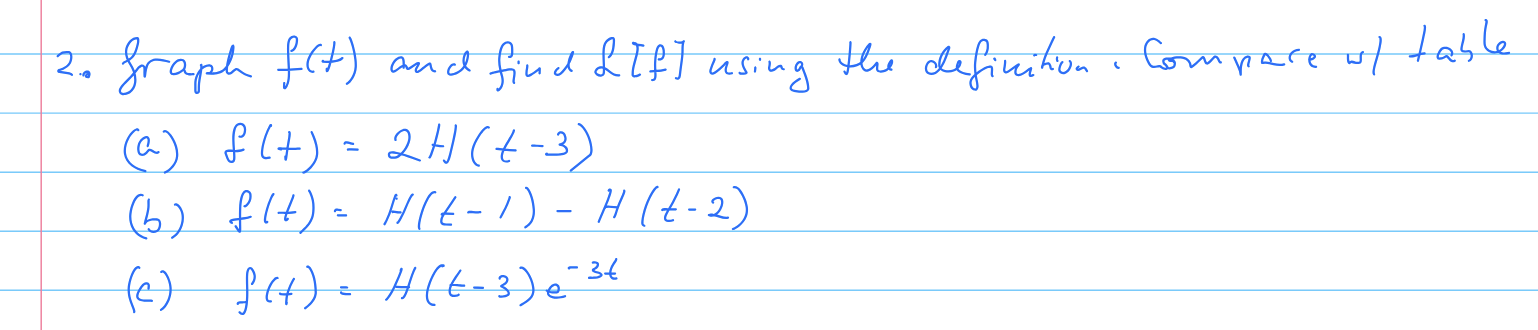 2. Graph f(t) and find L[f] using the definition. Compare w/ table
(a) f(t) = 2H(t-3)
(b) f(t) = H(t-1) - H(t-2)
(c) f(t) = H(t-3)e^{-3t}